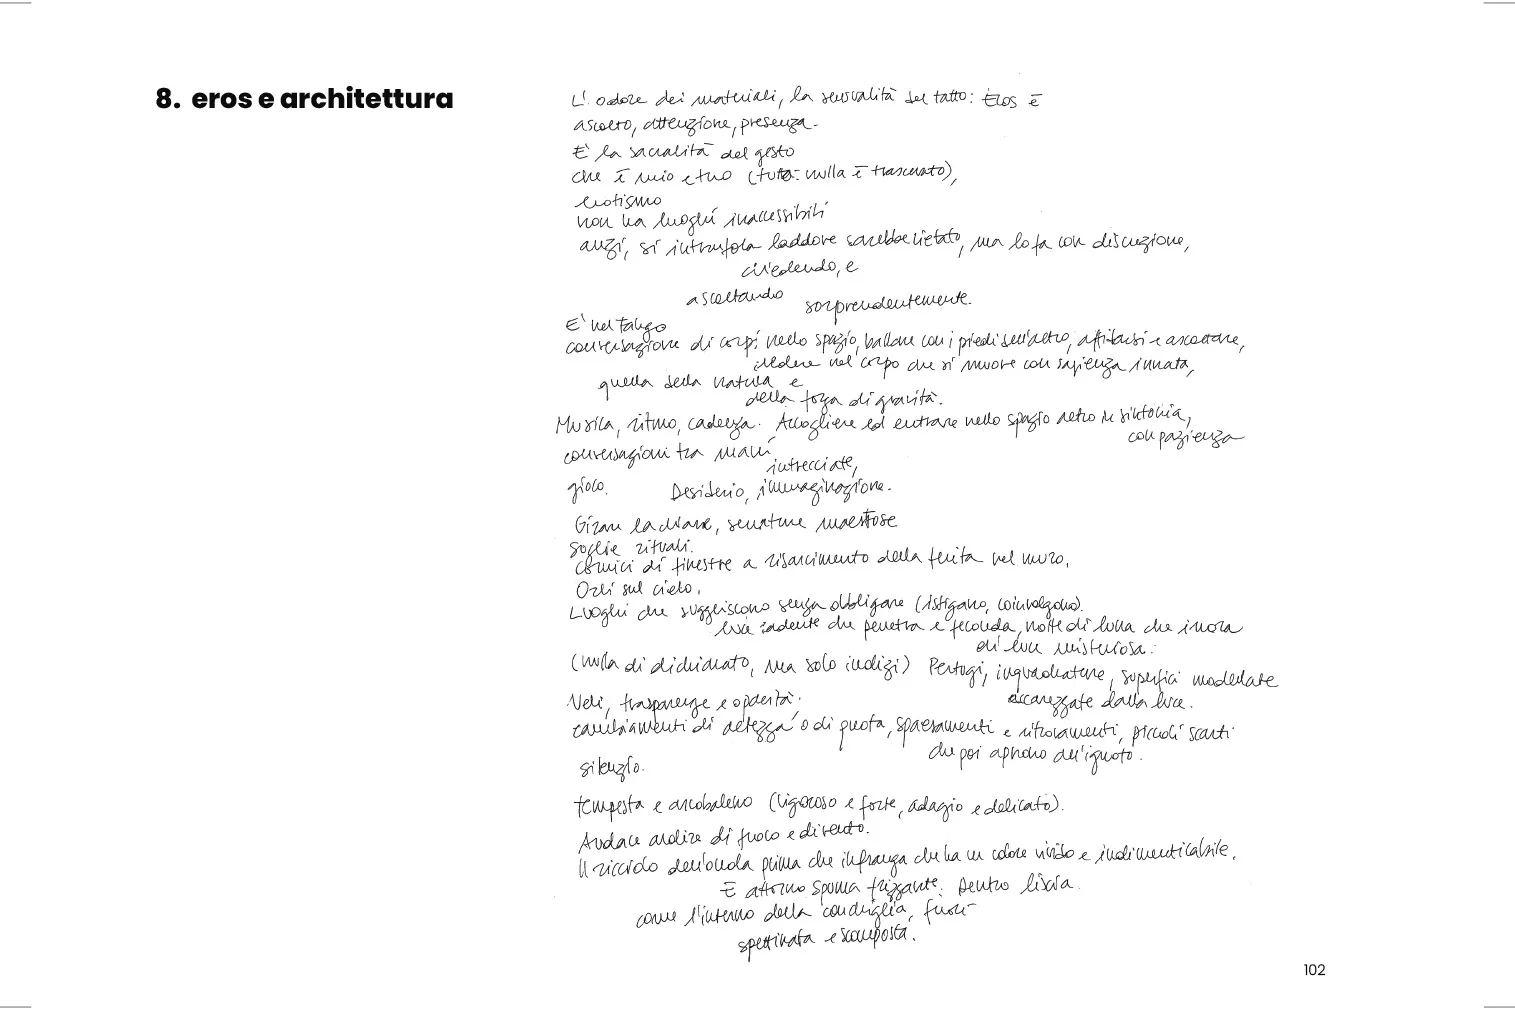 8. eros e architettura
L'odore dei materiali, la sensualità del tatto: Eros è
ascolto, attenzione, presenza.
E' la sacralità del gesto
che è mio e tuo (tutto: nulla è trascurato),
erotismo
non ha luoghi inaccessibili
anzi, si intrufola laddove sarebbe vietato, ma lo fa con discrezione,
chiedendo, e
ascoltando sorprendentemente.
E' nel tango
conversazione di corpi nello spazio, ballare con i piedi dell'altro, affidarsi e ascoltare,
credere nel corpo che si muove con sapienza innata,
quella della natura e
della forza di gravità.
Musica, ritmo, cadenza. Accogliere ed entrare nello spazio altro in sintonia,
con pazienza
conversazioni tra mani
intrecciate,
gioco. Desiderio, immaginazione.
Girare la chiave, serrature maestose
Soglie rituali.
Cornici di finestre a risarcimento della ferita nel muro.
Orli sul cielo.
Luoghi che suggeriscono senza obbligare (istigano, coinvolgono).
luce radente che penetra e feconda, notte di luna che irrora
di luce misteriosa.
(nulla di dichiarato, ma solo indizi) Pertugi, inquadrature, superfici modellate
accarezzate dalla luce.
Veli, trasparenze e opacità.
cambiamenti di altezza o di quota, spaesamenti e ritrovamenti, piccoli scarti
che poi aprono all'ignoto.
silenzio.
tempesta e arcobaleno (vigoroso e forte, adagio e delicato).
Audace ardire di fuoco e di vento.
Il ricciolo dell'onda prima che infranga che ha un colore vivido e indimenticabile.
E attorno spuma frizzante. Dentro liscia
come l'interno della conchiglia, fuori
spettinata e scomposta.
102